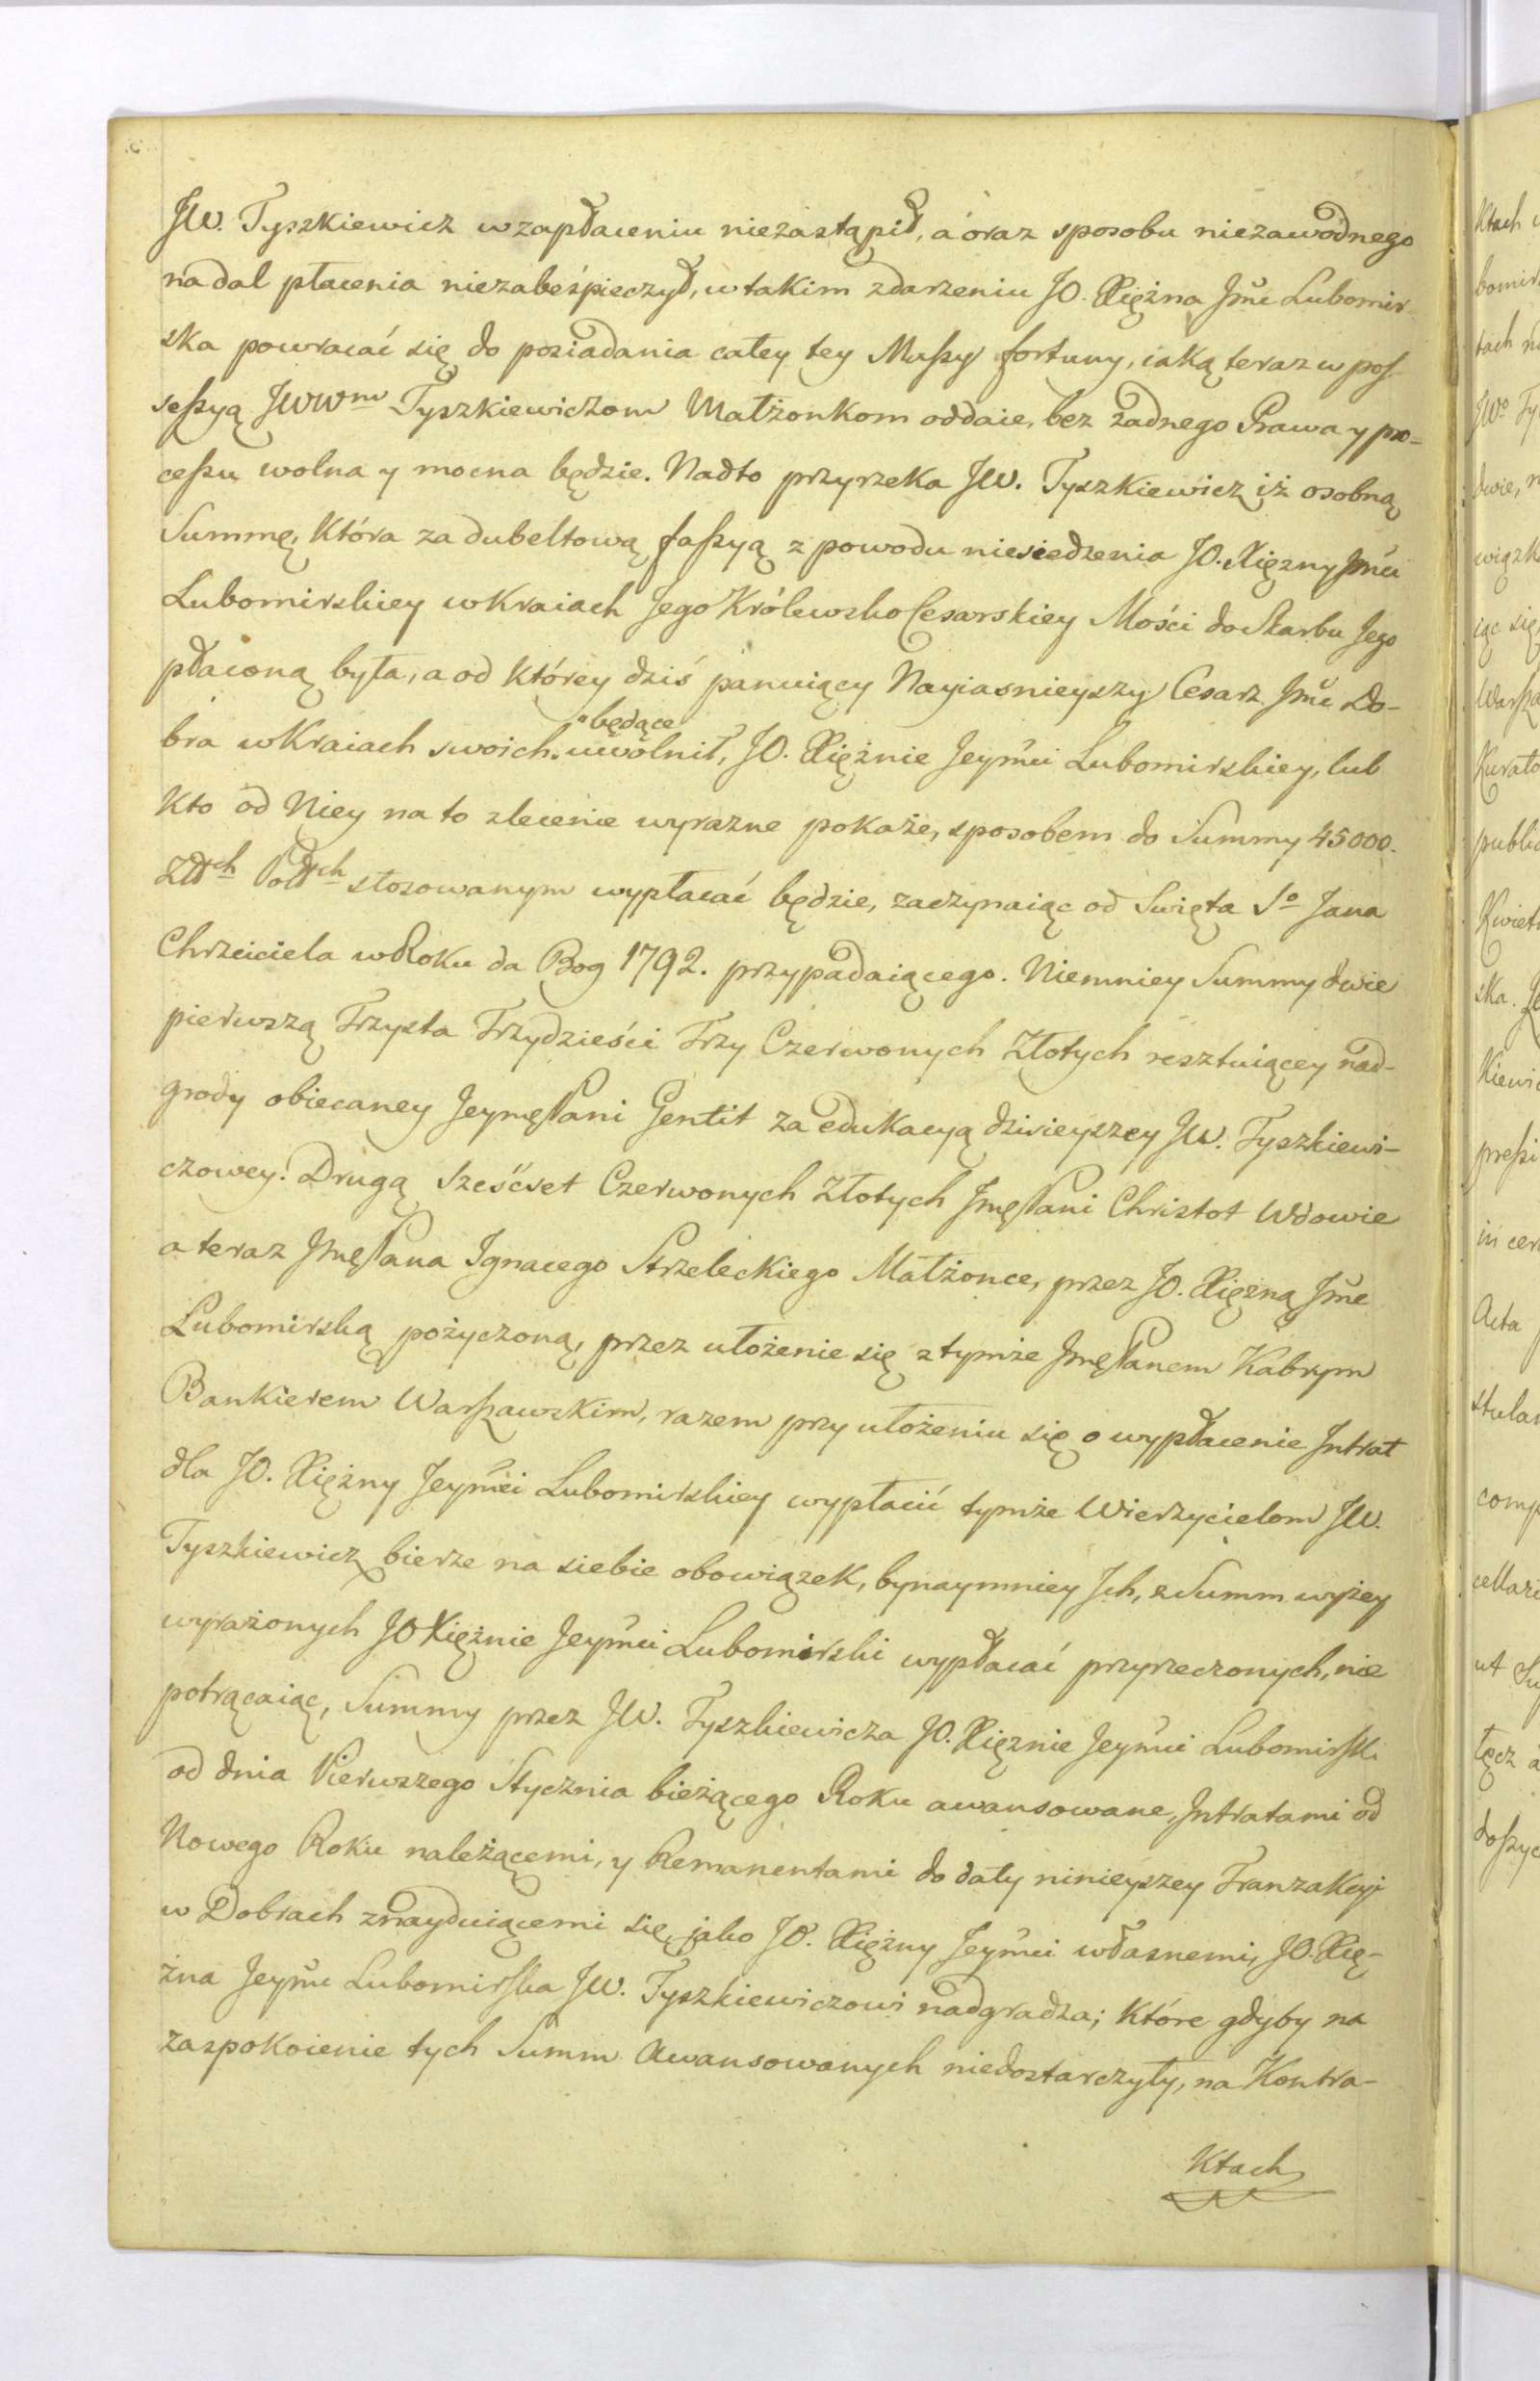 JW. Tyszkiewicz w zapłaceniu niezastąpił, á oraz sposobu niezawodnego
nadal płacenia niezabeśpieczył, w takim zdarzeniu JO. Xiężna Jmć Lubomir-
ska powracać się do posiadania całey tey Massy fortuny, iaką teraz w pos-
sessyą JWW^m Tyszkiewiczom Małżonkom oddaie, bez żadnego Prawa y pro-
cessu wolna y mocna będzie. Nadto przyrzeka JW. Tyszkiewicz iż osobną
Summę, która za dubeltową fassyą z powodu niesiedzenia JO. Xięzny Jmći
Lubomirskiey w Kraiach Jego Królewsko Cesarskiey Mości do Skarbu Jego
płaconą była, a od którey dziś panuiący Nayiasnieyszy Cesarz Jmć Do-
bra w Kraiach swoich będące uwolnił, JO. Xiężnie Jeymći Lubomirskiey, lub
kto od Niey na to zlecenie wyrazne pokaże, sposobem do Summy 45000.
Złł^ch Poll^ch stosowanym wypłacać będzie, zaczynaiąc od Swięta S^o Jana
Chrzciciela w Roku da Bog 1792. przypadaiącego. Niemniey Summy dwie
pierwszą Trzysta Trzydzieści Trzy Czerwonych Złotych resztuiącey nad-
grody obiecaney Jeymę Pani Gentit za edukacyą dzisieyszey JW. Tyszkiewi-
czowey. Drugą Sześćset Czerwonych Złotych Jmę Pani Christot Wdowie
a teraz Jmę Pana Ignacego Strzeleckiego Małżonce, przez JO. Xięzną Jmć
Lubomirską pożyczoną, przez ułożenie się z tymże Jmę Panem Kabrym
Bankierem Warszawskim, razem przy ułożeniu się o wypłacenie Intrat
dla JO. Xiężny Jeymći Lubomirskiey wypłacić tymże Wierzycielom JW.
Tyszkiewicz bierze na siebie obowiązek, bynaymniey Ich, z Summ wyżey
wyrażonych JO Xiężnie Jeymći Lubomirski wypłacać przyrzeczonych, nie
potrącaiąc, Summy przez JW. Tyszkiewicza JO. Xięznie Jeymći Lubomirski
od dnia Pierwszego Stycznia bieżącego Roku awansowane, Intratami od
Nowego Roku należącemi, y Remanentami do daty ninieyszey Tranzakcyi
w Dobrach znayduiącemi się, jako JO. Xiężny Jeymći własnemi, JO. Xię-
żna Jeymć Lubomirska JW. Tyszkiewiczowi nadgradza; które gdyby na
zaspokoienie tych Summ Awansowanych niedostarczyły, na Kontra-
ktach